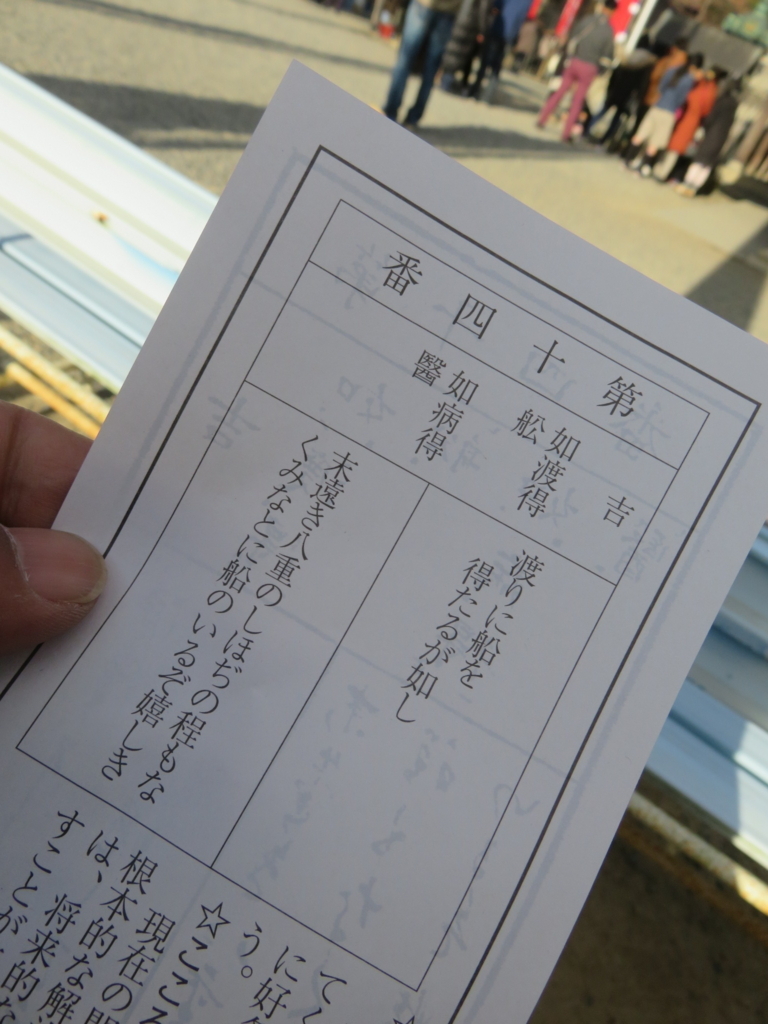 第十四番
吉
如渡得
舩
如病得
醫
渡りに船を
得たるが如し
末遠き八重のしほぢの程もな
くみなとに船のいるぞ嬉しき
てく
に好
う。
☆こころ
現在の
根本的な解
は、将来的な
すことが